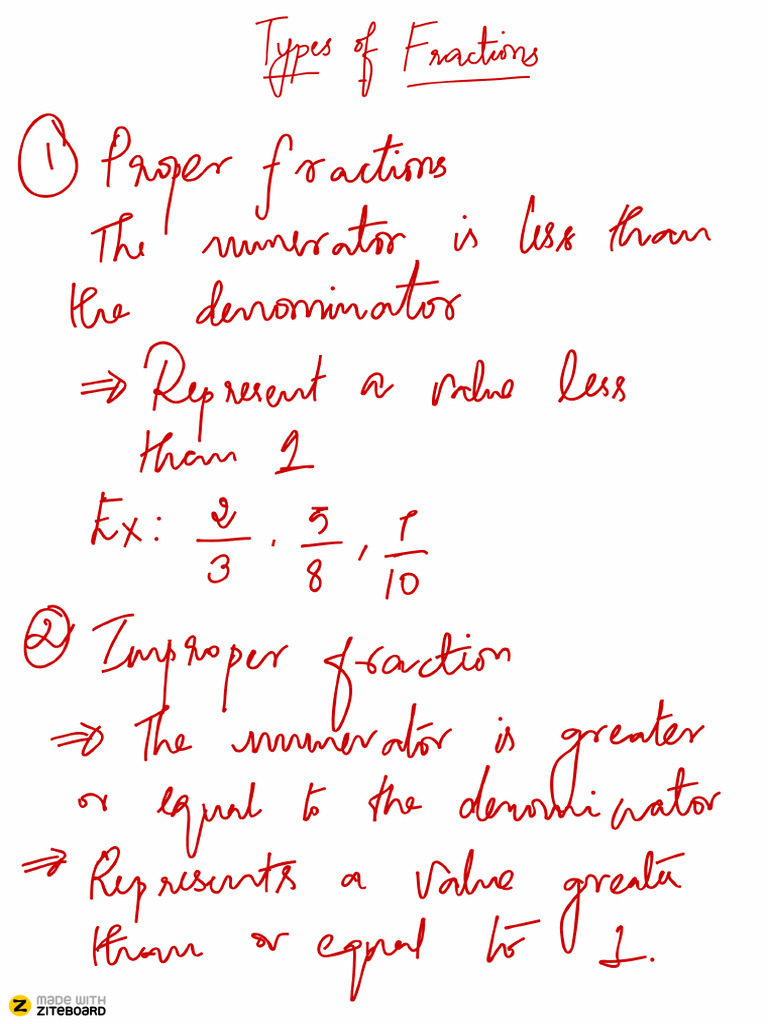 Types of Fractions
① Proper fractions
The numerator is less than
the denominator
⇒ Represent a value less
than 1
Ex: 2/3, 5/8, 1/10
② Improper fraction
⇒ The numerator is greater
or equal to the denominator
⇒ Represents a value greater
than or equal to 1.
MADE WITH
ZITEBOARD